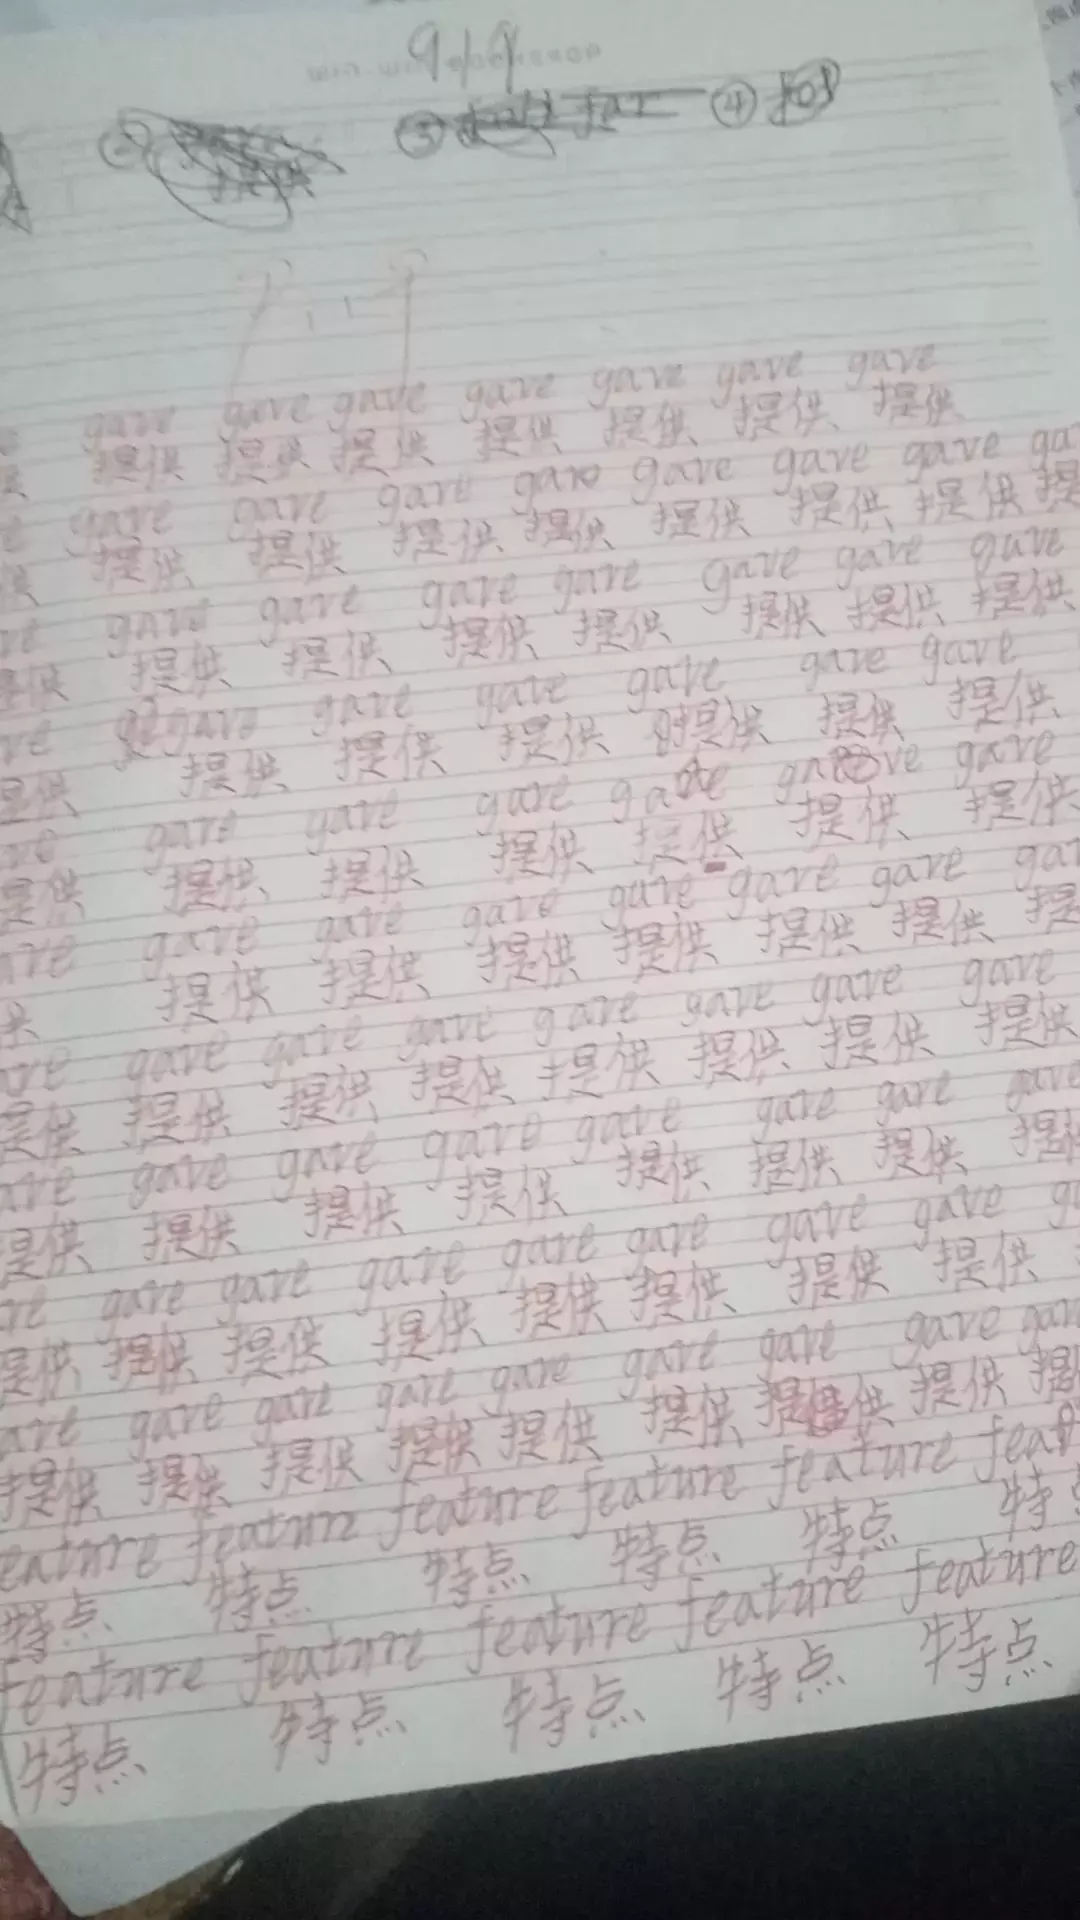 9/9
提供
③ ④
gave gave gave gave gave gave gave
提供 提供 提供 提供 提供 提供 提供
gave gave gave gave gave gave gave
提供 提供 提供 提供 提供 提供 提供 提
gave gave gave gave gave gave gave
提供 提供 提供 提供 提供 提供 提供 提供
gave gave gave gave gave gave
提供 提供 提供 提供 提供 提供 提供
gave gave gave gave gave
提供 提供 提供 提供 提供 提供 提供
gave gave gave gave gave gave
提供 提供 提供 提供 提供 提供 提
gave gave gave gave gave gave gave
提供 提供 提供 提供 提供 提供 提供 提供
gave gave gave gave gave gave gave
提供 提供 提供 提供 提供 提供 提供 提供
gave gave gave gave gave gave gave
提供 提供 提供 提供 提供 提供 提供 提供
gave gave gave gave gave gave gave
提供 提供 提供 提供 提供 提供 提供 提供 提
eature feature feature feature feature
特点 特点 特点 特点 特点 特
feature feature feature feature feature
特点 特点 特点 特点 特点